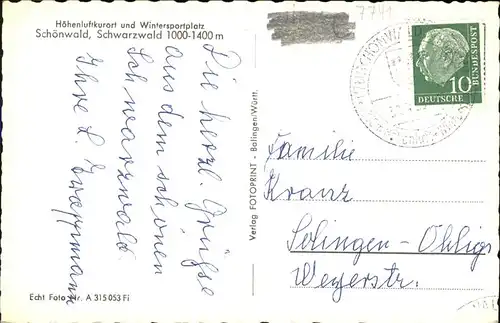 Höhenluftkurort und Wintersportplatz
Schönwald, Schwarzwald 1000-1400 m
Die herzl. Grüsse
aus dem schönen
Schwarzwald.
Ihre L.
Echt Foto Nr. A 315 053 Fi
Verlag FOTOPRINT - Balingen/Württ.
7741
10
DEUTSCHE
BUNDESPOST
Familie
Kranz
Solingen-Ohligs
Weyerstr.